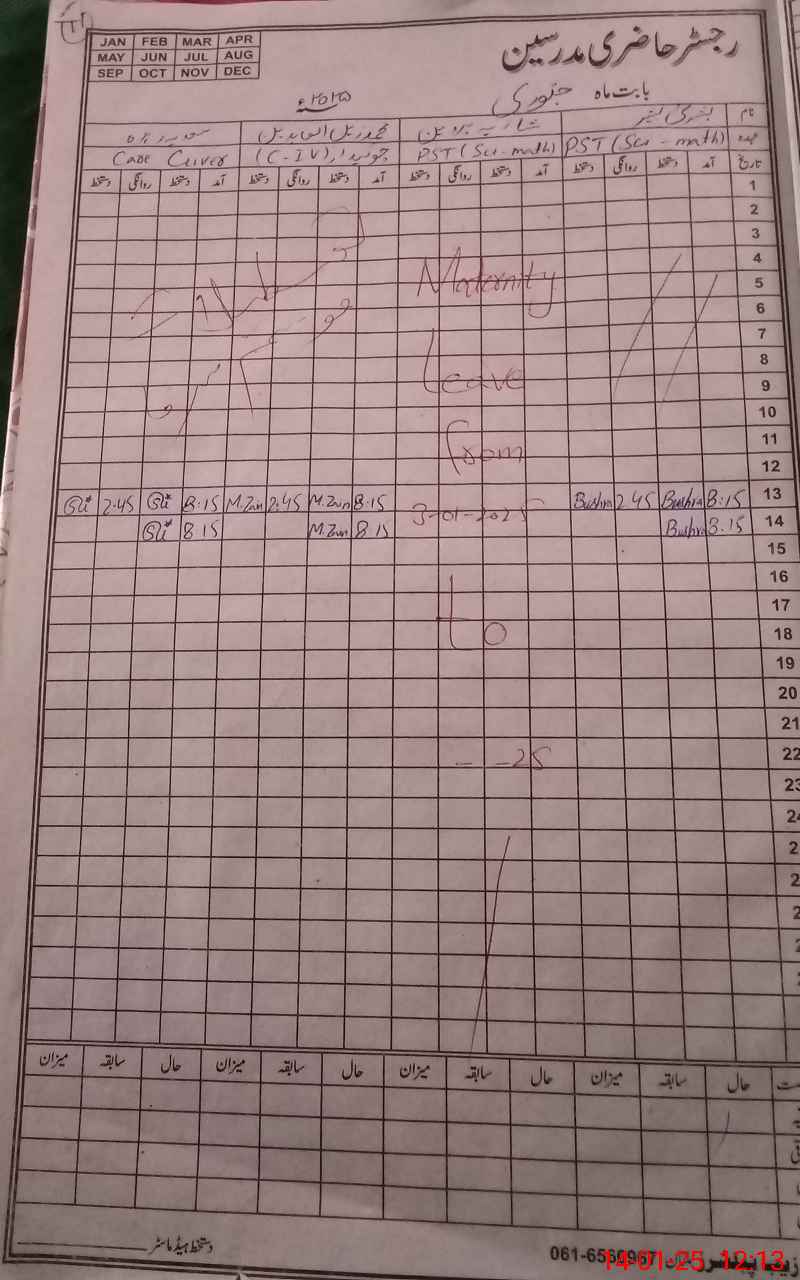 JAN FEB MAR APR
MAY JUN JUL AUG
SEP OCT NOV DEC
رجسٹر حاضری مدرسین
بابت ماہ جنوری ۲۰۲۵ء
نام بشریٰ
عہدہ PST (Sci - math) PST (Sci - math) چوکیدار (C-IV) Care Giver
تاریخ آمد دستخط روانگی دستخط آمد دستخط روانگی دستخط آمد دستخط روانگی دستخط آمد دستخط روانگی دستخط
1
2
3
4
Maternity 5
6
7
8
Leave 9
10
11
from 12
2:45 8:15 M.Zain 2:45 M.Zain 8:15 Bushra 2 45 Bushra 8:15 13
8 15 M.Zain 8 15 3-01-2025 Bushra 8.15 14
15
16
17
to 18
19
20
21
- -25 22
23
24
2
2
2
2
حال سابقہ میزان حال سابقہ میزان حال سابقہ میزان حال سابقہ میزان
دستخط ہیڈ ماسٹر
061-6560967
14-01-25 12:13